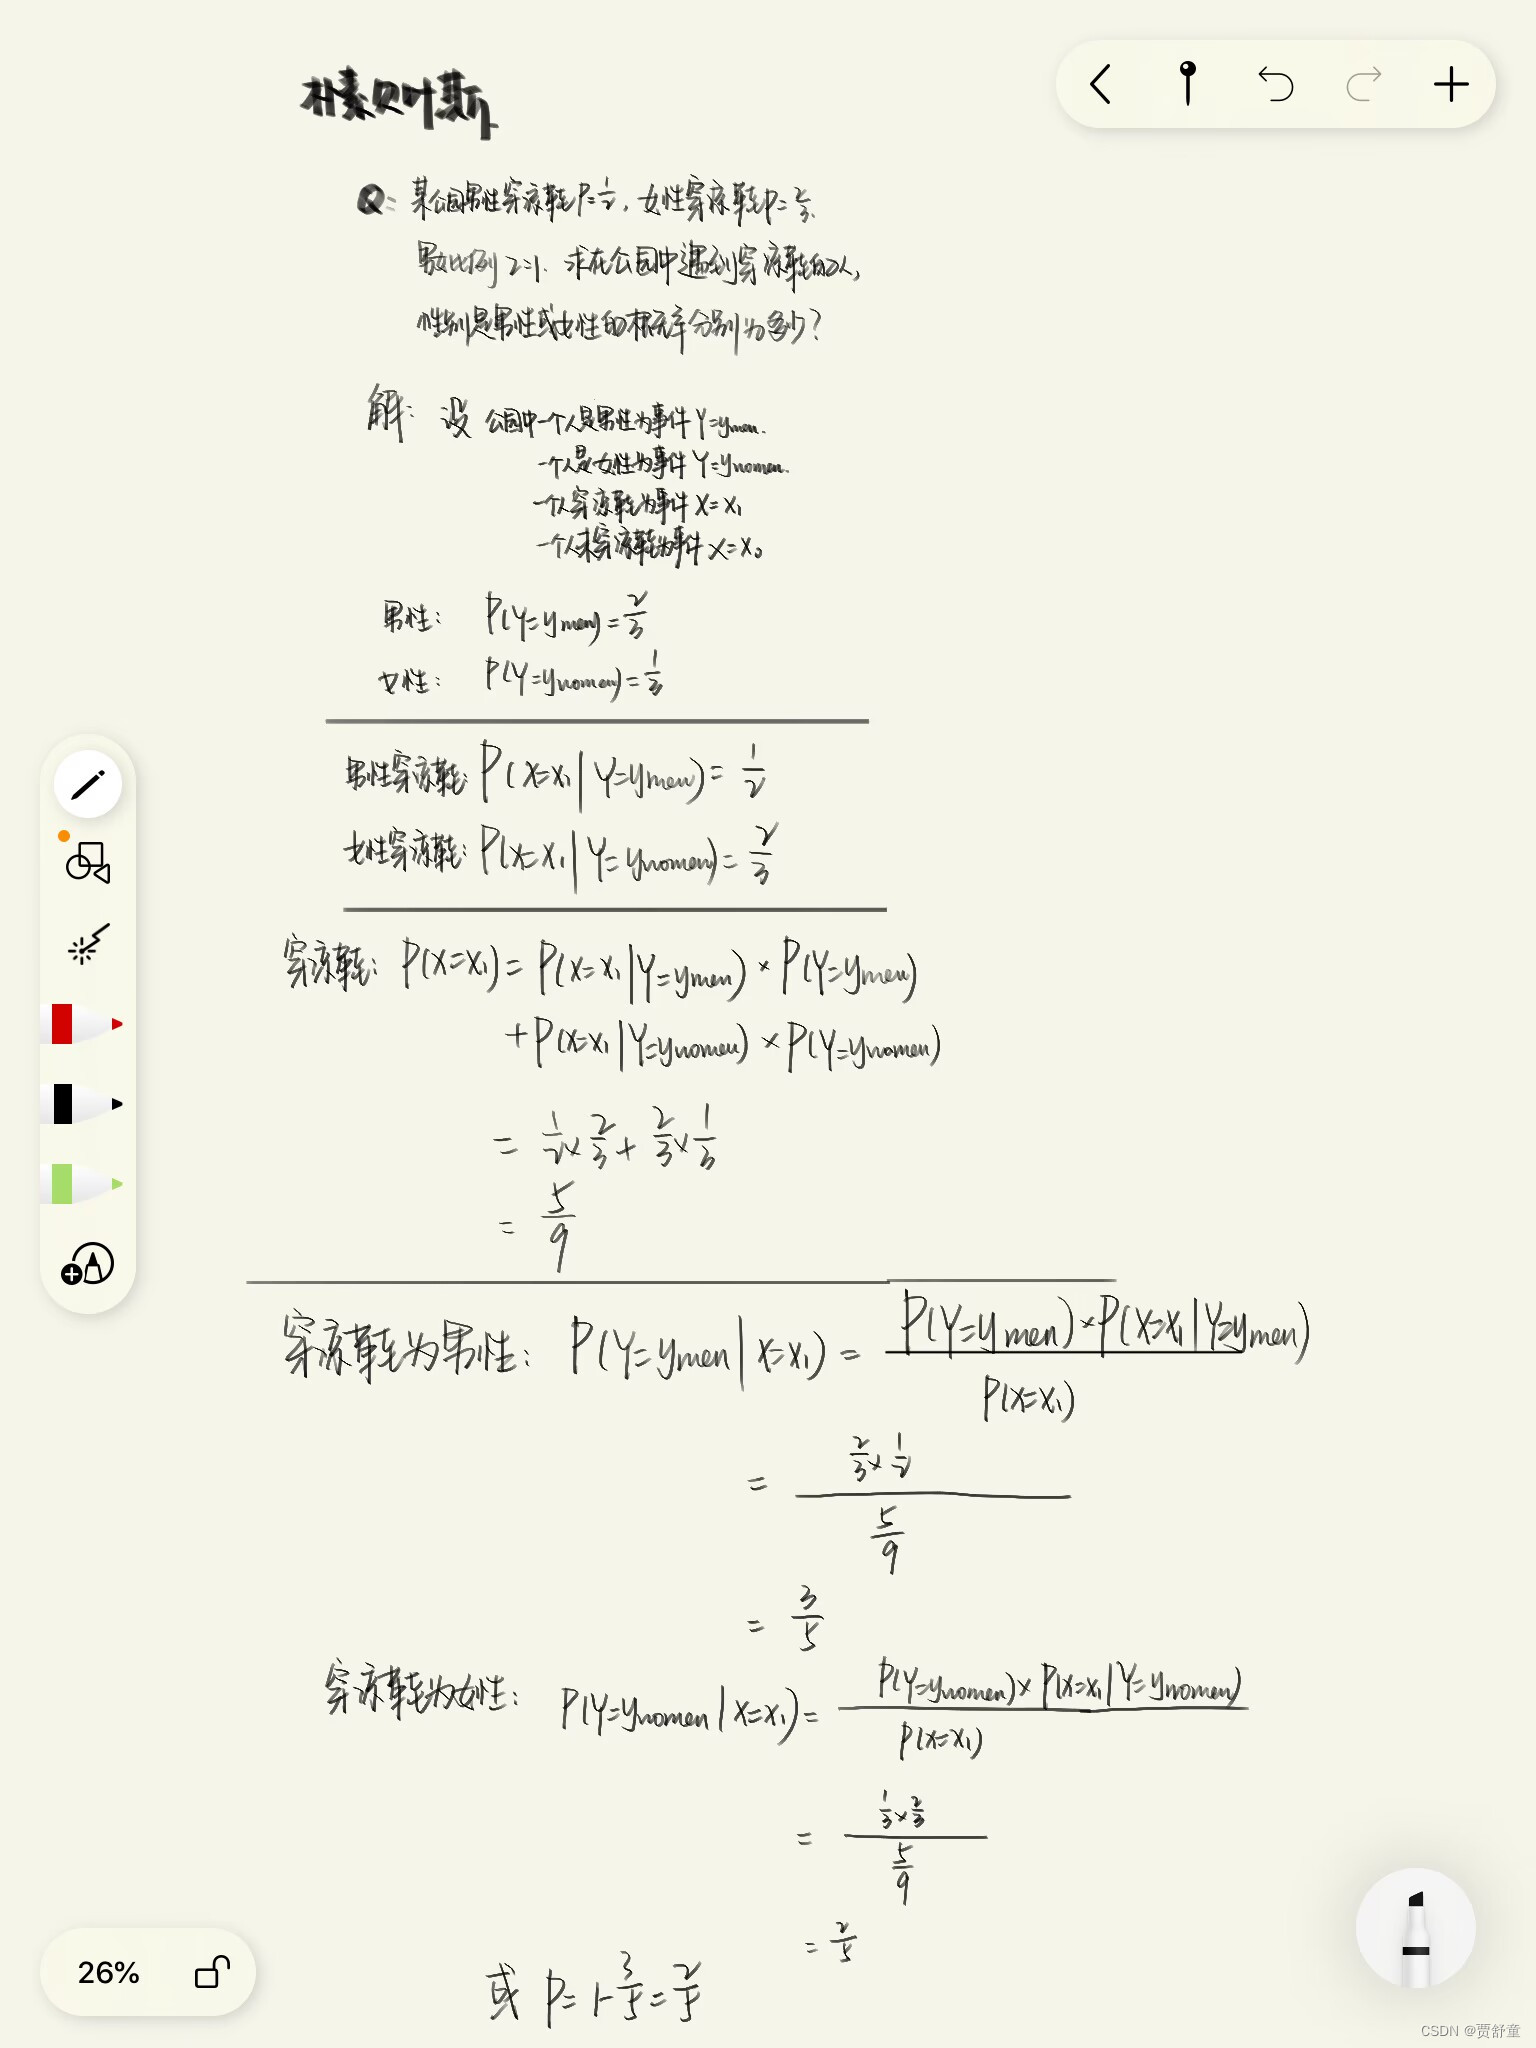 朴素贝叶斯
Q: 某公园男性穿凉鞋P=1/2, 女性穿凉鞋P=2/3.
男女比例2:1. 求在公园中遇到穿凉鞋的人,
性别是男性或女性的概率分别为多少?
解: 设 公园中一个人是男性为事件Y=ymen.
一个人是女性为事件Y=ywomen.
一个人穿凉鞋为事件X=x₁
一个人未穿凉鞋为事件X=x₀
男性: P(Y=ymen)=2/3
女性: P(Y=ywomen)=1/3
男性穿凉鞋: P(X=x₁|Y=ymen)=1/2
女性穿凉鞋: P(X=x₁|Y=ywomen)=2/3
穿凉鞋: P(X=x₁)=P(X=x₁|Y=ymen)×P(Y=ymen)
+P(X=x₁|Y=ywomen)×P(Y=ywomen)
= 1/2×2/3+2/3×1/3
= 5/9
穿凉鞋为男性: P(Y=ymen|X=x₁) = P(Y=ymen)×P(X=x₁|Y=ymen) / P(X=x₁)
= (2/3×1/2) / (5/9)
= 3/5
穿凉鞋为女性: P(Y=ywomen|X=x₁) = P(Y=ywomen)×P(X=x₁|Y=ywomen) / P(X=x₁)
= (1/3×2/3) / (5/9)
= 2/5
或 P=1-3/5=2/5
26%
CSDN @贾舒童